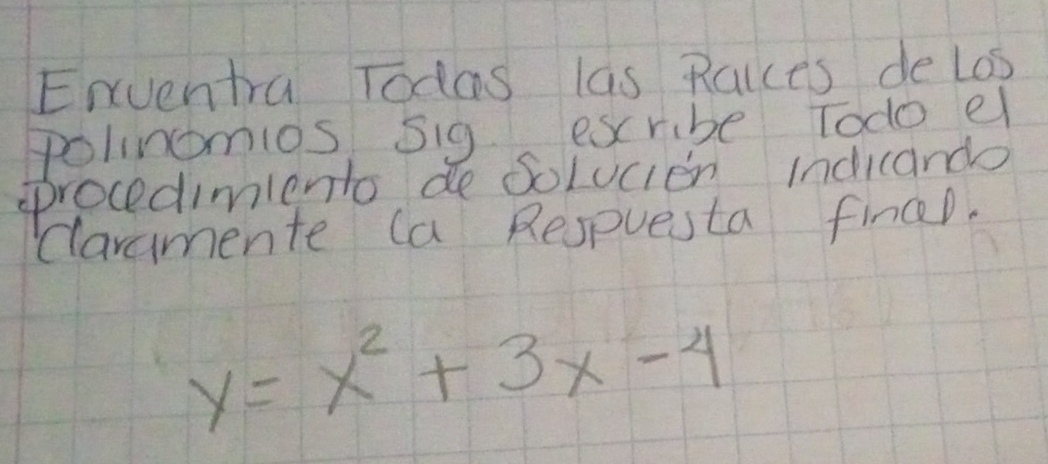 Encuentra Todas las Raices de Los
polinomios sig. escribe Todo el
procedimiento de Solución indicando
claramente la Respuesta final.
y = x² + 3x - 4